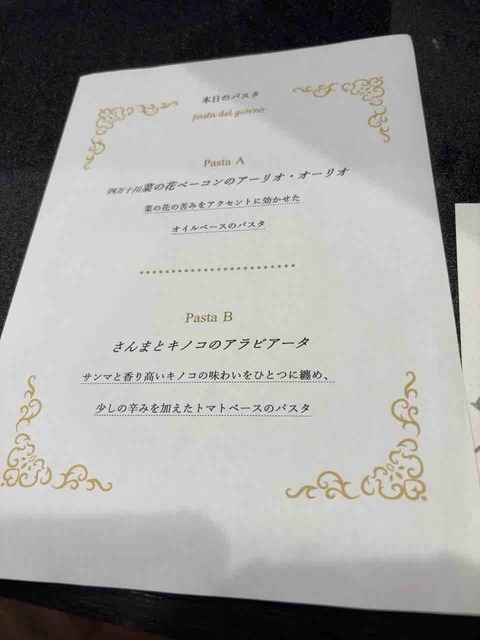 本日のパスタ
pasta del giorno
Pasta A
四万十川菜の花ベーコンのアーリオ・オーリオ
菜の花の苦みをアクセントに効かせた
オイルベースのパスタ
Pasta B
さんまとキノコのアラビアータ
サンマと香り高いキノコの味わいをひとつに纏め、
少しの辛みを加えたトマトベースのパスタ